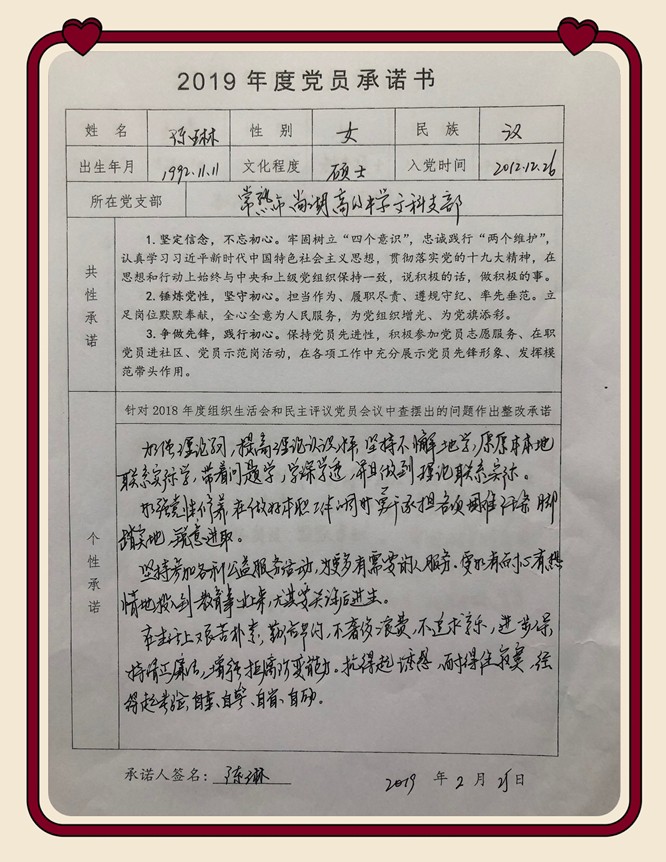 2019 年度党员承诺书
姓 名 陈琳 性 别 女 民 族 汉
出生年月 1992.11.11 文化程度 硕士 入党时间 2012.12.26
所在党支部 常熟市尚湖高级中学文科支部
共性承诺
1.坚定信念，不忘初心。牢固树立“四个意识”，忠诚践行“两个维护”，
认真学习习近平新时代中国特色社会主义思想，贯彻落实党的十九大精神，在
思想和行动上始终与中央和上级党组织保持一致，说积极的话，做积极的事。
2.锤炼党性，坚守初心。担当作为、履职尽责、遵规守纪、率先垂范。立
足岗位默默奉献，全心全意为人民服务，为党组织增光、为党旗添彩。
3.争做先锋，践行初心。保持党员先进性，积极参加党员志愿服务、在职
党员进社区、党员示范岗活动，在各项工作中充分展示党员先锋形象、发挥模
范带头作用。
个性承诺
针对 2018 年度组织生活会和民主评议党员会议中查摆出的问题作出整改承诺
加强理论 ，提高理论认识水平，坚持不懈地学，原原本本地
联系实际学，带着问题学，学深学透，并且做到理论联系实际。
加强党性修养，在做好本职工作的同时勇于承担各项困难任务，脚
踏实地，锐意进取。
坚持参加各种公益服务活动，为更多有需要的人服务。要有耐心有热
情地投入到教育事业上来，尤其要关注后进生。
在生活上艰苦朴素，勤俭 ，不奢侈浪费，不追求享乐，进一步保
持清正廉洁，增强拒腐防变能力。抗得起诱惑，耐得住寂寞，经
得起考验，自重、自警、自省、自励。
承诺人签名：陈琳
2019 年 2 月 25 日